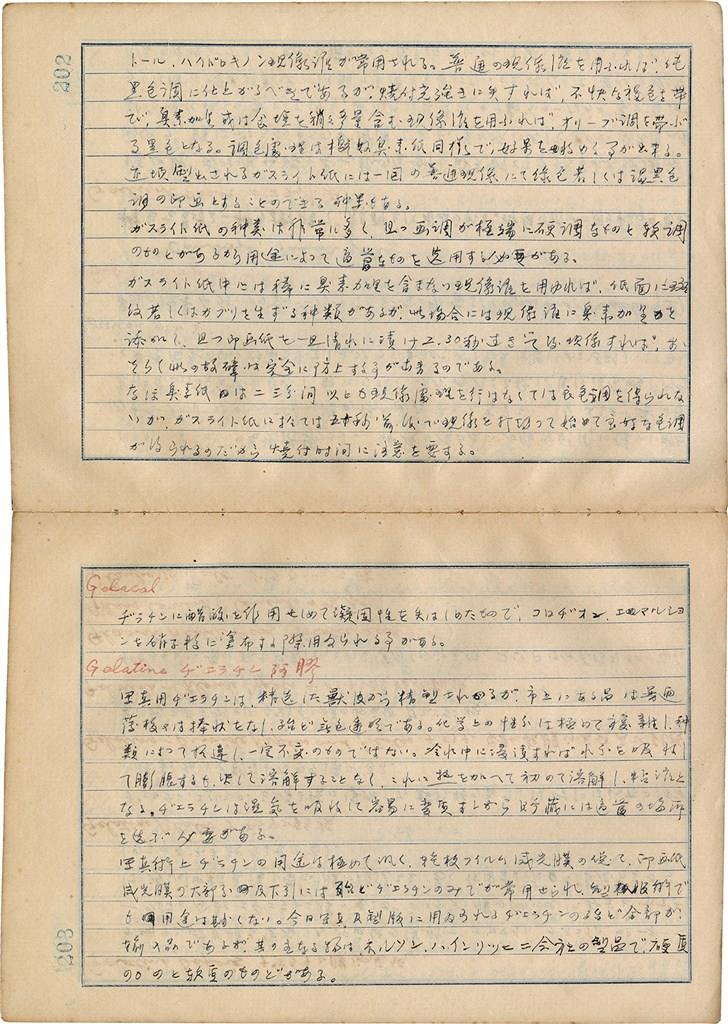 202
トール、ハイドロキノン現像液が常用される。普通の現像液を用ふれば、純
黒色調に仕上がるべきであるが、焼付完強きに失すれば、不快な褐色を帯
び、臭素加里或は食塩を稍々多量含む現像液を用ふれば、オリーブ調を帯ぶ
る黒色となる。調色処理は概ね臭素紙同様で、好果を収める事が出来る。
製出されるガスライト紙には一回の普通現像にて緑色若しくは温黒色
調の印画とすることのできる種類もある。
ガスライト紙の種類は非常に多く、且つ画調が極端に硬調なものと軟調
のものとがあるから用途によつて適当なものを選用する必要がある。
ガスライト紙中には稀に臭素加里を含まない現像液を用ふれば、紙面に
紋若しくはカブリを生ずる種類があるが、此場合には現像液に臭素加里を
添加し、且つ印画紙を一旦清水に漬け2.30秒過ぎて後現像すれば、お
そらく此の故障は完全に防止する事が出来るのである。
なほ臭素紙は二三分间以上も現像処理を行はなくては良色調を得られな
いが、ガスライト紙に於ては五十秒前後で現像を打切つて始めて良好な色調
が得られるのだから焼付时间に注意を要する。
Gelacol
ヂラチンに醋酸を作用せしめて凝固性を失はしめたもので、コロヂオン、エマルショ
ンを硝子板に塗布する際用ゐられる事がある。
Gelatine ヂエラチン 阿膠
写真用ヂエラチンは、精選した獣皮から精製されるが、市上にある品は普通
薄板又は棒状をなし、殆ど無色透明である。化学上の性分は極めて変易し、種
類によつて相違し、一定不変のものではない。冷水中に浸漬すれば水分を吸收し
て膨脹するも、決して溶解することなく、これに熱を加へて初めて溶解し、粘液と
なる。ヂエラチンは湿気を吸收して容易に変質するから貯藏には適当の場所
を選ぶ必要がある。
写真術上ヂラチンの用途は極めて汎く、乾板フイルム感光膜の使て、印画紙
感光膜の大部分及下引には殆どヂエラチンのみでが常用せられ、製版術で
も用途は尠くない。今日写真及製版に用ゐられるヂエラチンの殆ど全部が、
輸入品であるが、其の主なる物は、ネルソン、ハインリッヒ二会社の製品で、硬質
のものと軟質のものとがある。
203